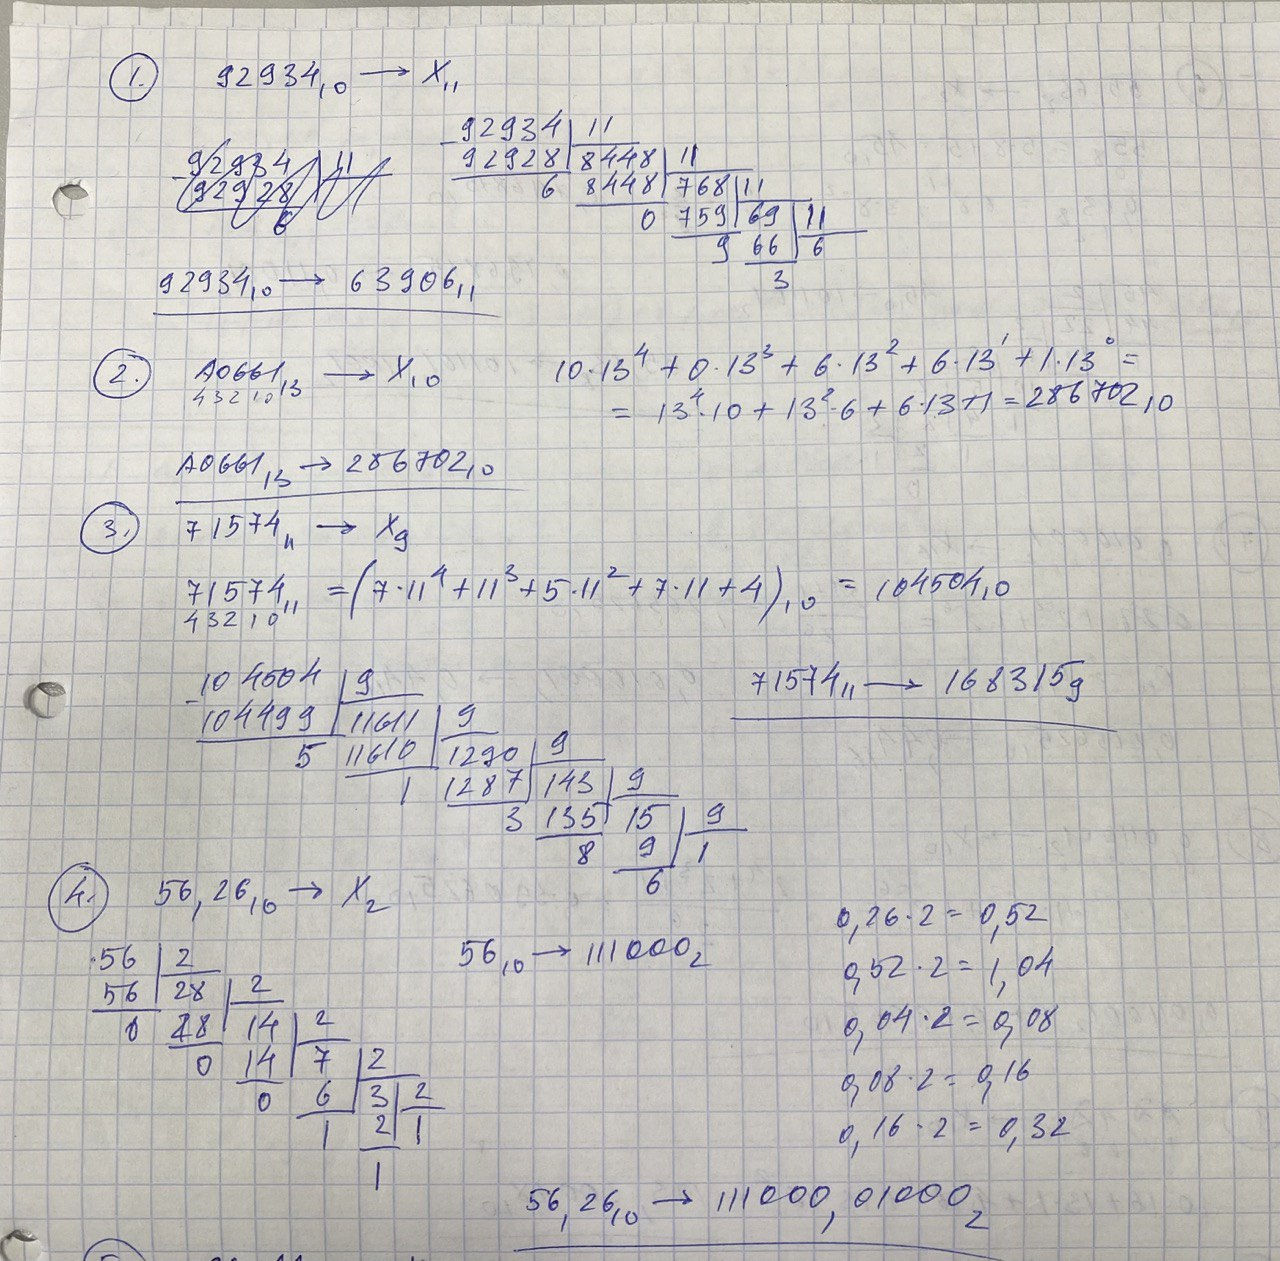 1. 92934₁₀ → X₁₁
92934 | 11
92928 | 8448 | 11
6 8448 | 768 | 11
0 759 | 69 | 11
9 66 | 6
3
92934₁₀ → 63906₁₁
2. A0661₁₃ → X₁₀ 10·13⁴ + 0·13³ + 6·13² + 6·13¹ + 1·13⁰ =
43210
= 13⁴·10 + 13²·6 + 6·13+1 = 286702₁₀
A0661₁₃ → 286702₁₀
3. 71574₁₁ → X₉
71574₁₁ = (7·11⁴ + 11³ + 5·11² + 7·11 + 4)₁₀ = 104504₁₀
43210
104504 | 9
104499 | 11611 | 9
5 11610 | 1290 | 9
1 1287 | 143 | 9
3 135 | 15 | 9
8 9 | 1
6
71574₁₁ → 168315₉
4. 56,26₁₀ → X₂
56 | 2
56 | 28 | 2
0 28 | 14 | 2
0 14 | 7 | 2
0 6 | 3 | 2
1 2 | 1
1
56₁₀ → 111000₂
0,26·2 = 0,52
0,52·2 = 1,04
0,04·2 = 0,08
0,08·2 = 0,16
0,16·2 = 0,32
56,26₁₀ → 111000,01000₂